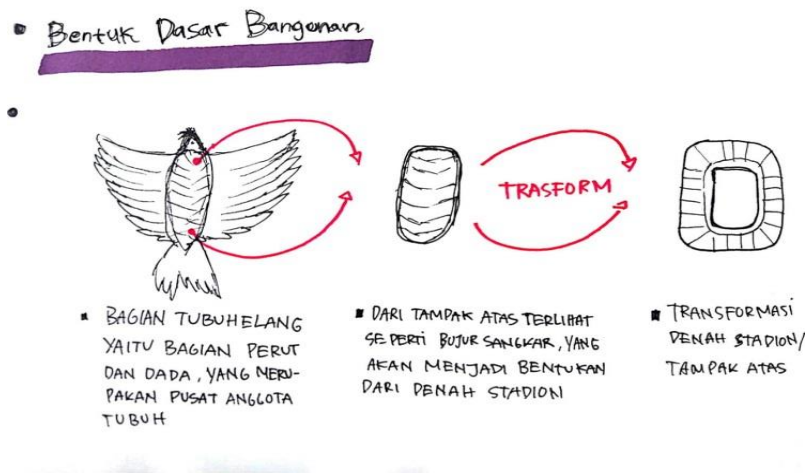 Bentuk Dasar Bangunan
TRASFORM
BAGIAN TUBUHELANG
YAITU BAGIAN PERUT
DAN DADA, YANG MERU-
PAKAN PUSAT ANGGOTA
TUBUH
DARI TAMPAK ATAS TERLIHAT
SEPERTI BUJUR SANGKAR, YANG
AKAN MENJADI BENTUKAN
DARI DENAH STADION
TRANSFORMASI
DENAH STADION/
TAMPAK ATAS